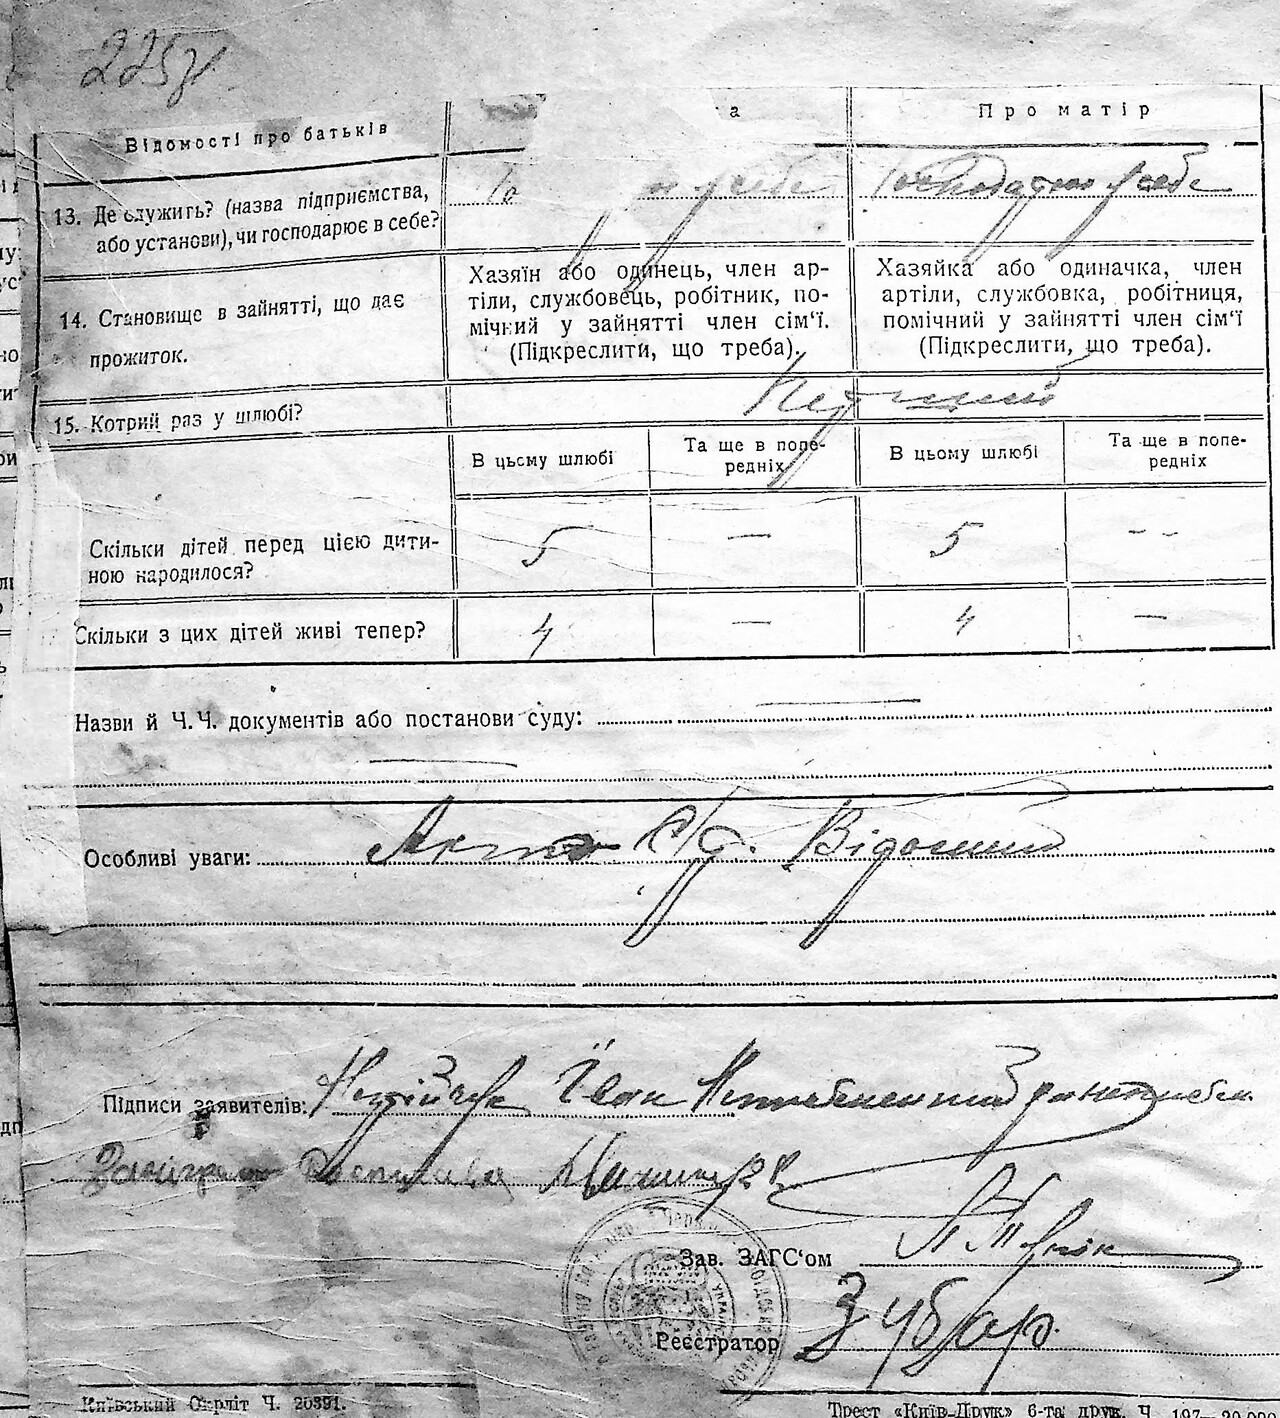 225
Відомості про батьків
а
Про матір
13. Де служить? (назва підприємства,
або установи), чи господарює в себе?
у себе
Господарює у себе
14. Становище в зайнятті, що дає
прожиток.
Хазяїн або одинець, член ар-
тіли, службовець, робітник, по-
мічний у зайнятті член сім'ї.
(Підкреслити, що треба).
Хазяйка або одиначка, член
артіли, службовка, робітниця,
помічний у зайнятті член сім'ї
(Підкреслити, що треба).
15. Котрий раз у шлюбі?
Перший
В цьому шлюбі
Та ще в попе-
редніх
В цьому шлюбі
Та ще в попе-
редніх
Скільки дітей перед цією дити-
ною народилося?
5 — 5 --
Скільки з цих дітей живі тепер?
4 — 4 —
Назви й Ч.Ч. документів або постанови суду:
Особливі уваги:
Підписи заявителів: Іван
Зав. ЗАГС'ом
Реєстратор Зубар
Київський Окрліт Ч. 20391.
Трест «Київ-Друк» 6-та друк. Ч. 197—20.000